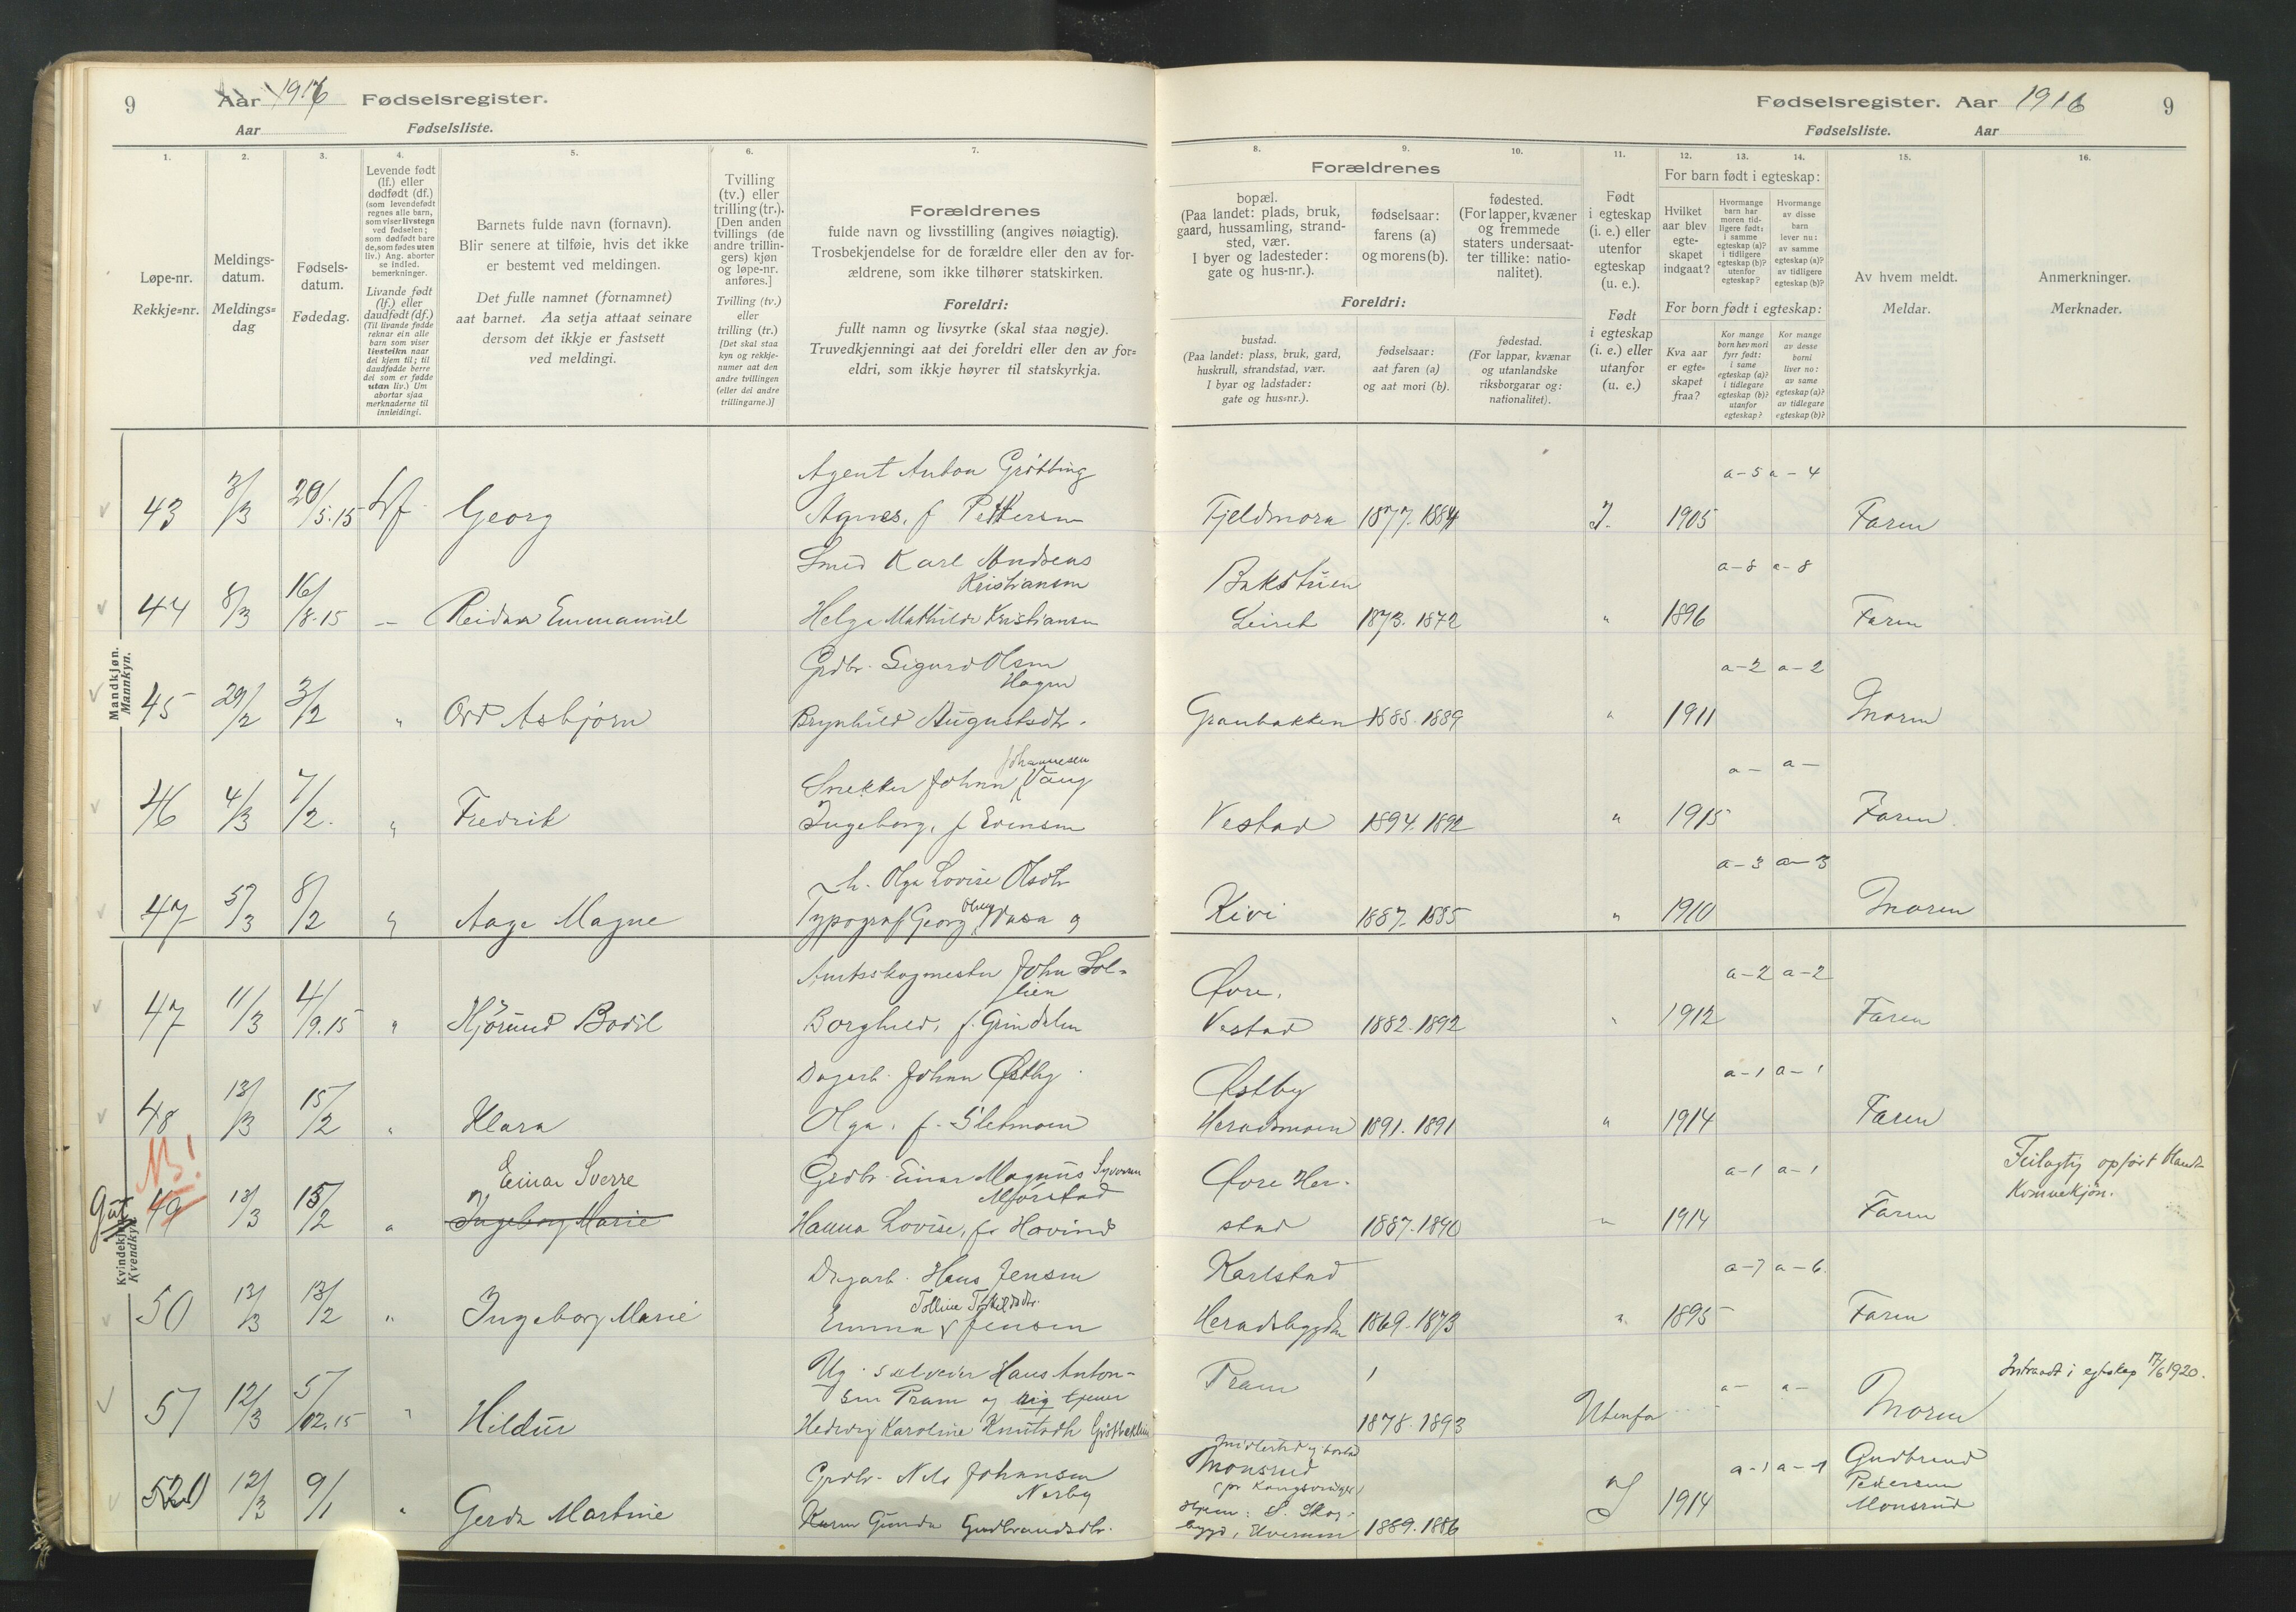 9 Aar 1916 Fødselsregister.
Aar Fødselsliste.
Fødselsregister. Aar 1916 9
Fødselsliste. Aar
1. 2. 3. 4. 5. 6. 7.
Løpe-nr.
Rekkje=nr.
Meldings-
datum.
Meldings=
dag
Fødsels-
datum.
Fødedag.
Levende født
(lf.) eller
dødfødt (df.)
(som levendefødt
regnes alle barn,
som viser livstegn
ved fødselen;
som dødfødt bare
de, som fødes uten
liv.) Ang. aborter
se indled.
bemerkninger.
Livande født
(lf.) eller
daudfødt (df.)
(Til livande fødde
reknar ein alle
barn som viser
livsteikn naar
dei kjem til; til
daudfødde berre
dei som er fødde
utan liv.) Um
abortar sjaa
merknaderne til
innleidingi.
Barnets fulde navn (fornavn).
Blir senere at tilføie, hvis det ikke
er bestemt ved meldingen.
Det fulle namnet (fornamnet)
aat barnet. Aa setja attaat seinare
dersom det ikkje er fastsett
ved meldingi.
Tvilling
(tv.) eller
trilling (tr.).
[Den anden
tvillings (de
andre trillin-
gers) kjøn
og løpe-nr.
anføres.]
Tvilling (tv.)
eller
trilling (tr.)
[Det skal staa
kyn og rekkje-
numer aat den
andre tvillingen
(eller dei andre
trillingarne.)]
Forældrenes
fulde navn og livsstilling (angives nøiagtig).
Trosbekjendelse for de forældre eller den av for-
ældrene, som ikke tilhører statskirken.
Foreldri:
fullt namn og livsyrke (skal staa nøgje).
Truvedkjenningi aat dei foreldri eller den av for=
eldri, som ikkje høyrer til statskyrkja.
8. 9. 10. 11. 12. 13. 14. 15. 16.
Forældrenes
bopæl.
(Paa landet: plads, bruk,
gaard, hussamling, strand-
sted, vær.
I byer og ladesteder:
gate og hus-nr.).
fødselsaar:
farens (a)
og morens (b).
fødested.
(For lapper, kvæner
og fremmede
staters undersaat-
ter tillike: natio-
nalitet).
Foreldri:
bustad.
(Paa landet: plass, bruk, gard,
huskrull, strandstad, vær.
I byar og ladstader:
gate og hus=nr.).
fødselsaar:
aat faren (a)
og aat mori (b).
fødestad.
(For lappar, kvænar
og utanlandske
riksborgarar og:
nationalitet).
Født
i egteskap
(i. e.) eller
utenfor
egteskap
(u. e.).
Født
i egteskap
(i. e.) eller
utanfor
(u. e.)
For barn født i egteskap:
Hvilket
aar blev
egte-
skapet
indgaat?
Hvormange
barn har
moren tid-
ligere født:
i samme
egteskap (a)?
i tidligere
egteskap (b)?
utenfor
egteskap?
Hvormange
av disse
barn
lever nu:
av samme
egteskap (a)?
av tidligere
egteskap (b)?
For born født i egteskap:
Kva aar
er egte=
skapet
fraa?
Kor mange
born hev mori
fyrr født:
i same
egteskap (a)?
i tidlegare
egteskap (b)?
utanfor
egteskap?
Kor mange
av desse
borni
liver no:
av same
egteskap (a)?
av tidlegare
egteskap (b)?
Av hvem meldt.
Meldar.
Anmerkninger.
Merknader.
Mandkjøn.
Mannkyn.
Agent Anton Grøtting a-5 a-4
43 3/3 20/5.15 Lf. Georg Agnes, f Pettersen Fjeldmora 1877. 1884 I. 1905 Faren
Smed Karl Andreas Bakstuen a-8 a-8
Kristiansen
44 8/3 16/8.15 — Reidar Emmanuel Helga Mathilde Kristiansen Leiret 1873. 1872 " 1896 Faren
Grdbr. Sigurd Olsen a-2 a-2
Hagen
45 29/2 3/2 " Odd Asbjørn Brynhild Augustsdtr. Granbakken 1885. 1889 " 1911 Moren
Johannesen
Snekker Johan Vang a- a-
46 4/3 7/2. " Fredrik Ingeborg, f Evensen Vestad 1894. 1892 " 1915 Faren.
h. Olga Lovise Olsdtr a-3 a-3
47 5/3 8/2 " Aage Magne Typograf Georg Olsen Wasa og Kivi 1887. 1885 " 1910 Moren
Kvindekjøn.
Kvendkyn.
Amtsskogmester John Sol- Øvre. a-2 a-2
lien
47 11/3 4/9.15 " Hjørund Bodil Borghild, f. Grindalen Vestad 1882. 1892 " 1912 Faren
Dagarb. Johan Østby Østby a-1 a-1
48 13/3 15/2 " Klara Olga, f. Sletmoen Heradsmoen 1891. 1891 " 1914 Faren
NB!
Einar Sverre Grdbr. Einar Magnus Syversen Øvre Her- a-1 a-1 Feilagtig opført blandt
Mørstad Kvinnekjøn.
Gut 49 13/3 15/2 " Ingeborg Marie Hanna Lovise, f. Hovind stad 1887. 1890 " 1914 Faren
Dagarb. Hans Jensen Karlstad a-7 a-6.
50 13/3 13/2 " Ingeborg Marie Emma Jensen Heradsbygden 1869. 1873 " 1895 Faren
Ug. sadelmaker Hans Anton- Pram a- a- Indtraadt i egteskap 17/6 1920.
sen Pram og pige tjener
51 12/3 5/12.15 " Hildur Hedvig Karoline Knutsdtr 1878. 1893 Utenfor Moren
Grdbr. Nils Johansen Midlertidig bosted Monsrud a-1 a-1 Gudbrand
Nerby (pr Kongsvinger) Pedersen
52 12/3 9/1 " Gerda Martine Karen Gunda Gudbrandsdtr. Hjem: S. Skog-
bygd, Elverum 1889. 1886 I 1914 Monsrud